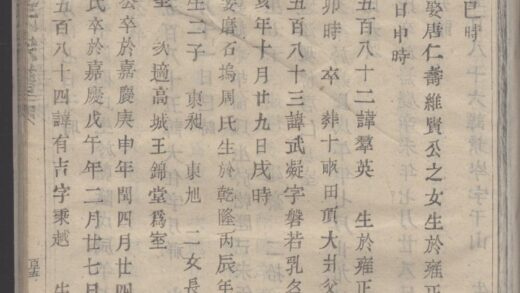 巳時
娶唐仁壽維賢公之女生於雍正
日申時
五百八十二諱羣英 生於雍正
卯時 卒 葬十畝田頂大井父
五百八十三諱武凝字磐若乳名
亥年十月廿九日戌時
娶磨石塢周氏生於乾隆丙辰年
生二子 東昶 東旭 二女長
室 次適高城王錦堂爲室
公卒於嘉慶庚申年閏四月廿四
氏卒於嘉慶戊午年二月廿七日
五百八十四諱有吉字秉越 生